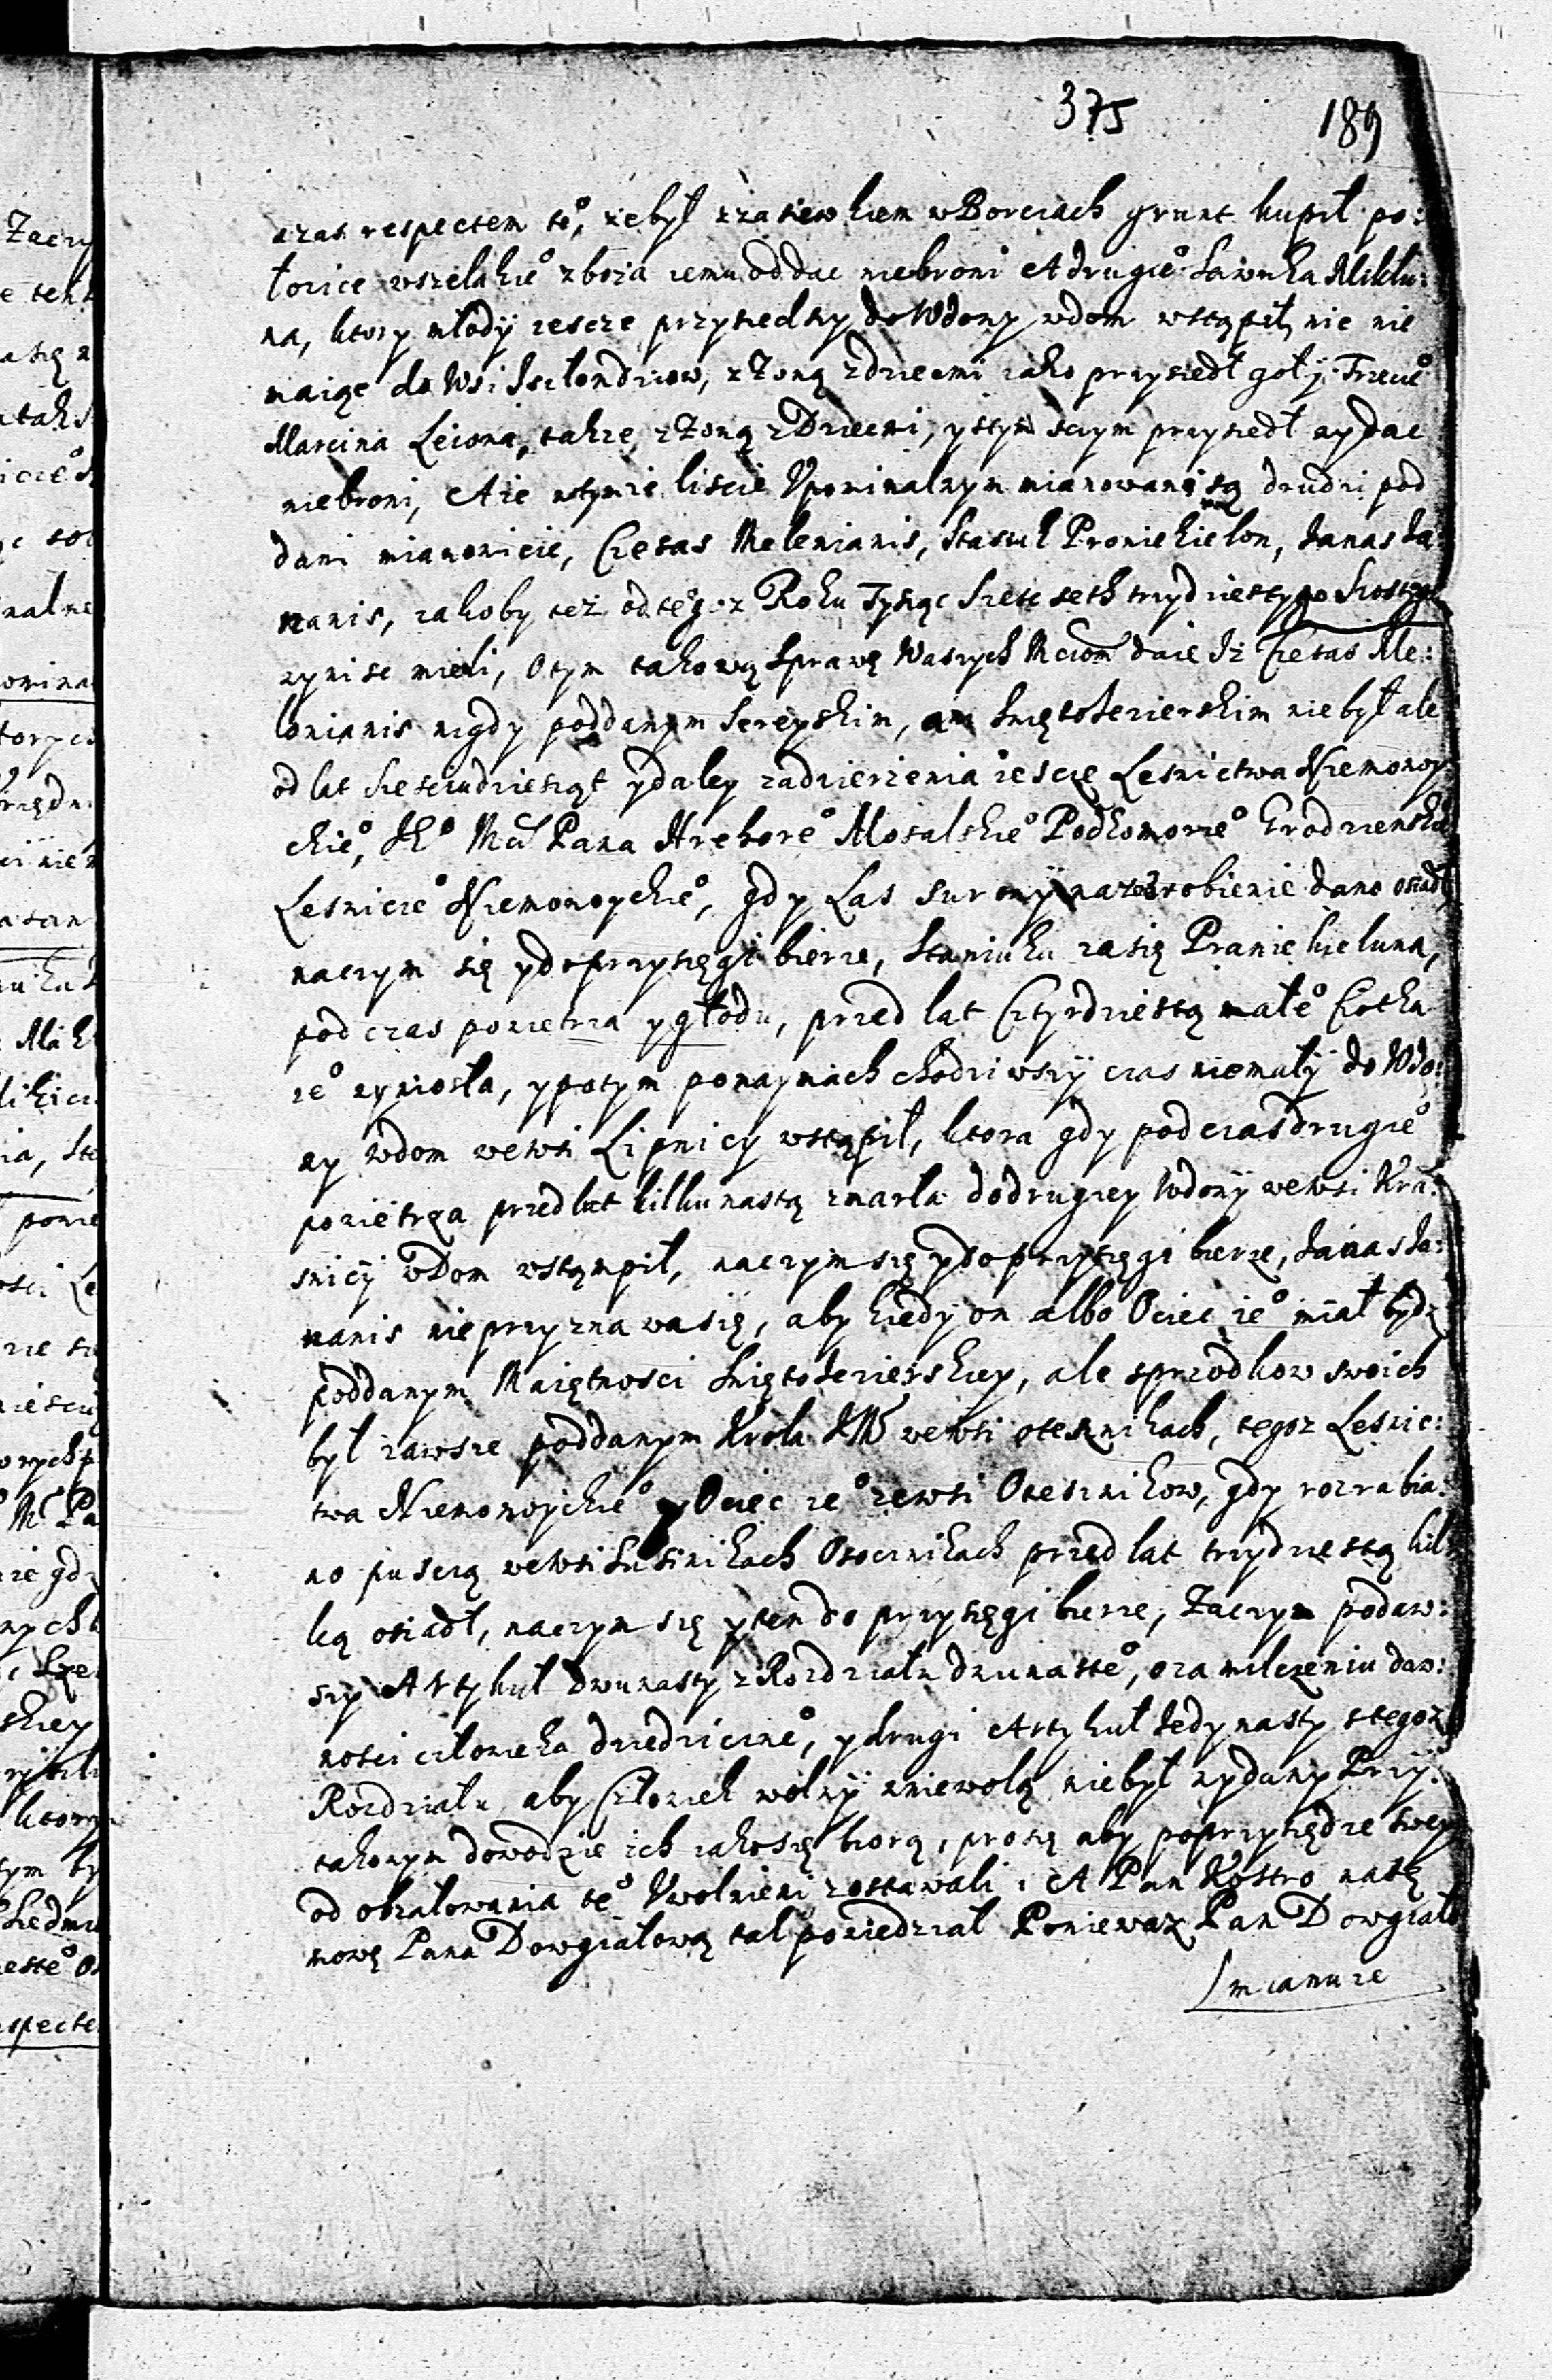 375 189
azas respectem te͠o, że był z zasiewkiem w Borciach grunt kupił po:
łowice wszelakie͠o zboża iemu oddac niebroni A drugie͠o Sawuka Miklu:
na, ktory młody iescze przyszedszy do Wdowy w dom wstąpił, nic nie
maiąc do Wsi, z Żoną z dziecmi iako przyszedł goły. Trzecie͠o
Marcina Leiona, także z Żoną z Dziecmi, y s tym s czym przyszedł wydac
niebroni, A że w tymże liscie Upominalnym mianowani są drudzi pod
dani mianowicie, Czesas Melenianis, Stasiuk Proniekielon, Janas Ja
nanis, iakoby też od tegoż Roku Tysiąc szesc seth trzydziestego szostego
wynisc mieli, O tym takową sprawę Waszych Mciom daie Iż Czesas Me:
lenianis nigdy poddanym Sereyskim, ani Swiętoiezierskim niebył ale
od lat szescudziesiąt y daley za dzierżenia iescze Lesnictwa Niemonoy
ckie͠o, Je͠o Mci Pana Hrehore͠o Mosalskie͠o Podkomorze͠o Grodzienskie͠o
Lesnicze͠o Niemonoyckie͠o, gdy Las surowy na rozrobienie dano osiadł,
na czym się y do przysięgi bierze, Staniuka zasię Praniekieluna,
pod czas powietrza y głodu, przed lat Cztyrdziestą małe͠o Ciotka
ie͠o wyniosła, y potym po naymach chodziwszy czas niemały do Wdo:
wy w dom we wsi Lipnicy wstąpił, ktora gdy pod czas drugie͠o
powietrza przed lat kilkunastą zmarła do drugiey Wdowy we wsi Kra:
snicy w Dom wstąmpił, na czym się y do przysięgi bierze, Janas Ja:
nanis nie przyznawa się, aby kiedy on albo Ociec ie͠o miał bydz
poddanym Maiętnosci Swiętoiezierskiey, ale s przodkow swoich
był zawsze poddanym Krola JM we wsi Osesznikach, tegoż Lesnic:
twa Niemonoyckie͠o y Ociec ie͠o ze wsi Osesznikow, gdy rozrabia:
no puszczą we wsi Osocznikach przed lat trzydziestą kil
ką osiadł, na czym się y ten do przysięgi bierze, Zaczym podaw:
szy Artykuł Dwunasty z Rozdziału dwunaste͠o, o zamilczeniu daw:
nosci człowieka dziedziczne͠o, y drugi Artykuł Jedynasty s tegoż
Rozdziału, aby Człowiek wolny w niewolą niebył wydany Przy
takowym dowodzie ich iako się biorą, proszę aby po przysiędze swey
od obżałowania te͠o Uwolnieni zostawali. A Pan Kostro na tę
mowę Pana Dowgiałową tak powiedział Ponieważ Pan Dowgiało
mianuie